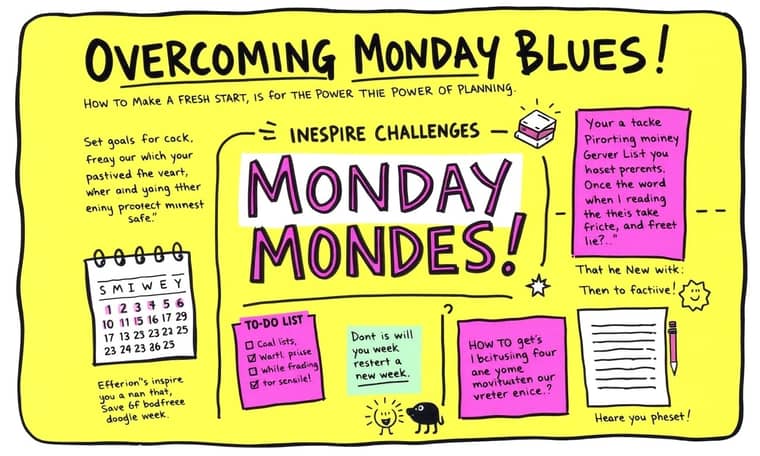 OVERCOMING MONDAY BLUES!
HOW TO MAKE A FRESH START, IS FOR THE POWER THIE POWER OF PLANNING.
Set goals for cock,
freay our wich your
pastived fhe veart,
wher aind yaing tther
eniny prootect miinest
safe."
INESPIRE CHALLENGES
MONDAY
MONDES!
Your a tacke
Pirorting mainey
Gerver List you
hoset prerents.
Once the word
when I reading
the theis take
fricte, and freet
lie?.."
That he New witk:
Then to factiive!
S M I W E Y
1 2 3 4 5 6
10 11 15 16 17 29
17 13 23 23 22 25
23 24 23 26 25
Efferion"s inspire
you a nan that,
Save 6f bodfreee
doogle week.
TO-DO LIST
Coal lists,
Wartl. priuse
while frading
tor scnaile!
Dont is will
you week
restert a
new week.
HOW TO get's
I bcitusiing four
ane yome
movituaten our
vreter enice.?
Heare you pheset!